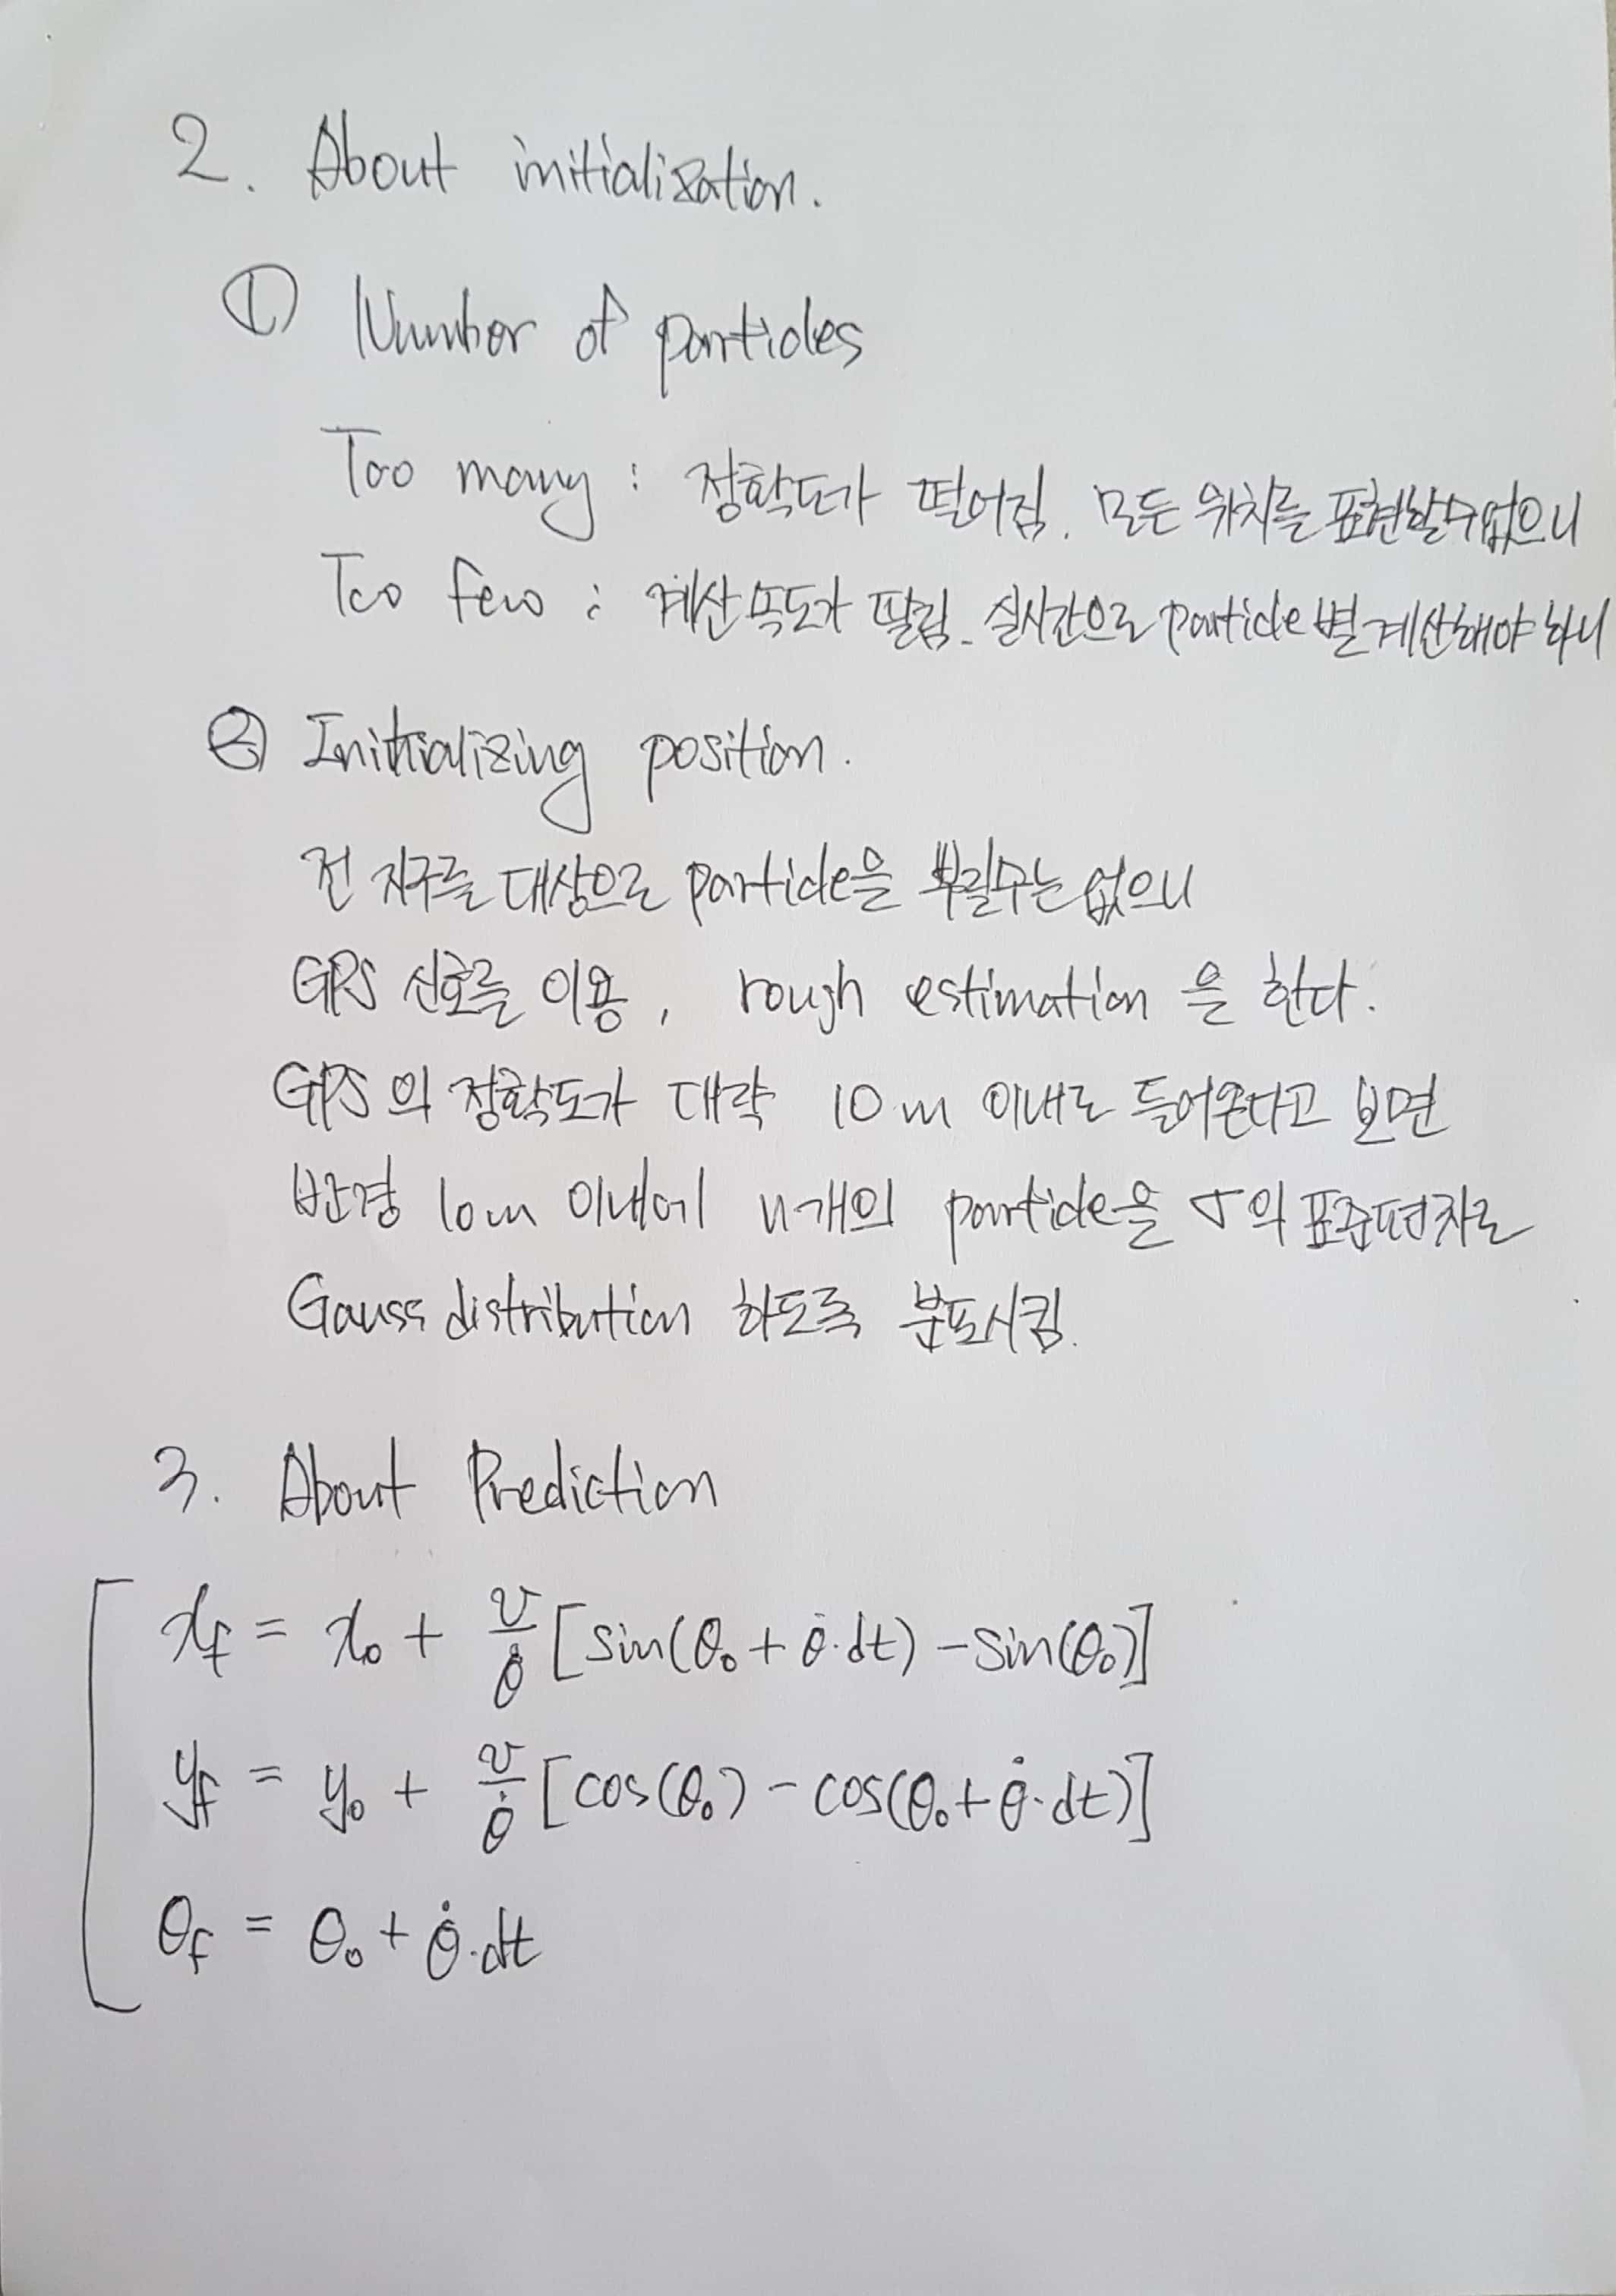 2. About initialization.
① Number of particles
Too many : 정확도가 떨어짐. 모든 위치를 표현할수없으니
Too few : 계산속도가 딸림. 실시간으로 particle별 계산해야 하니
② Initializing position.
전 지구를 대상으로 particle을 뿌릴수는 없으니
GPS 신호를 이용, rough estimation 을 한다.
GPS의 정확도가 대략 10m 이내로 들어온다고 보면
반경 10m 이내에 n개의 particle을 σ의 표준편차로
Gauss distribution 하도록 분포시킴.
3. About Prediction
x_f = x₀ + v/θ̇ [sin(θ₀ + θ̇·dt) - sin(θ₀)]
y_f = y₀ + v/θ̇ [cos(θ₀) - cos(θ₀ + θ̇·dt)]
θ_f = θ₀ + θ̇·dt